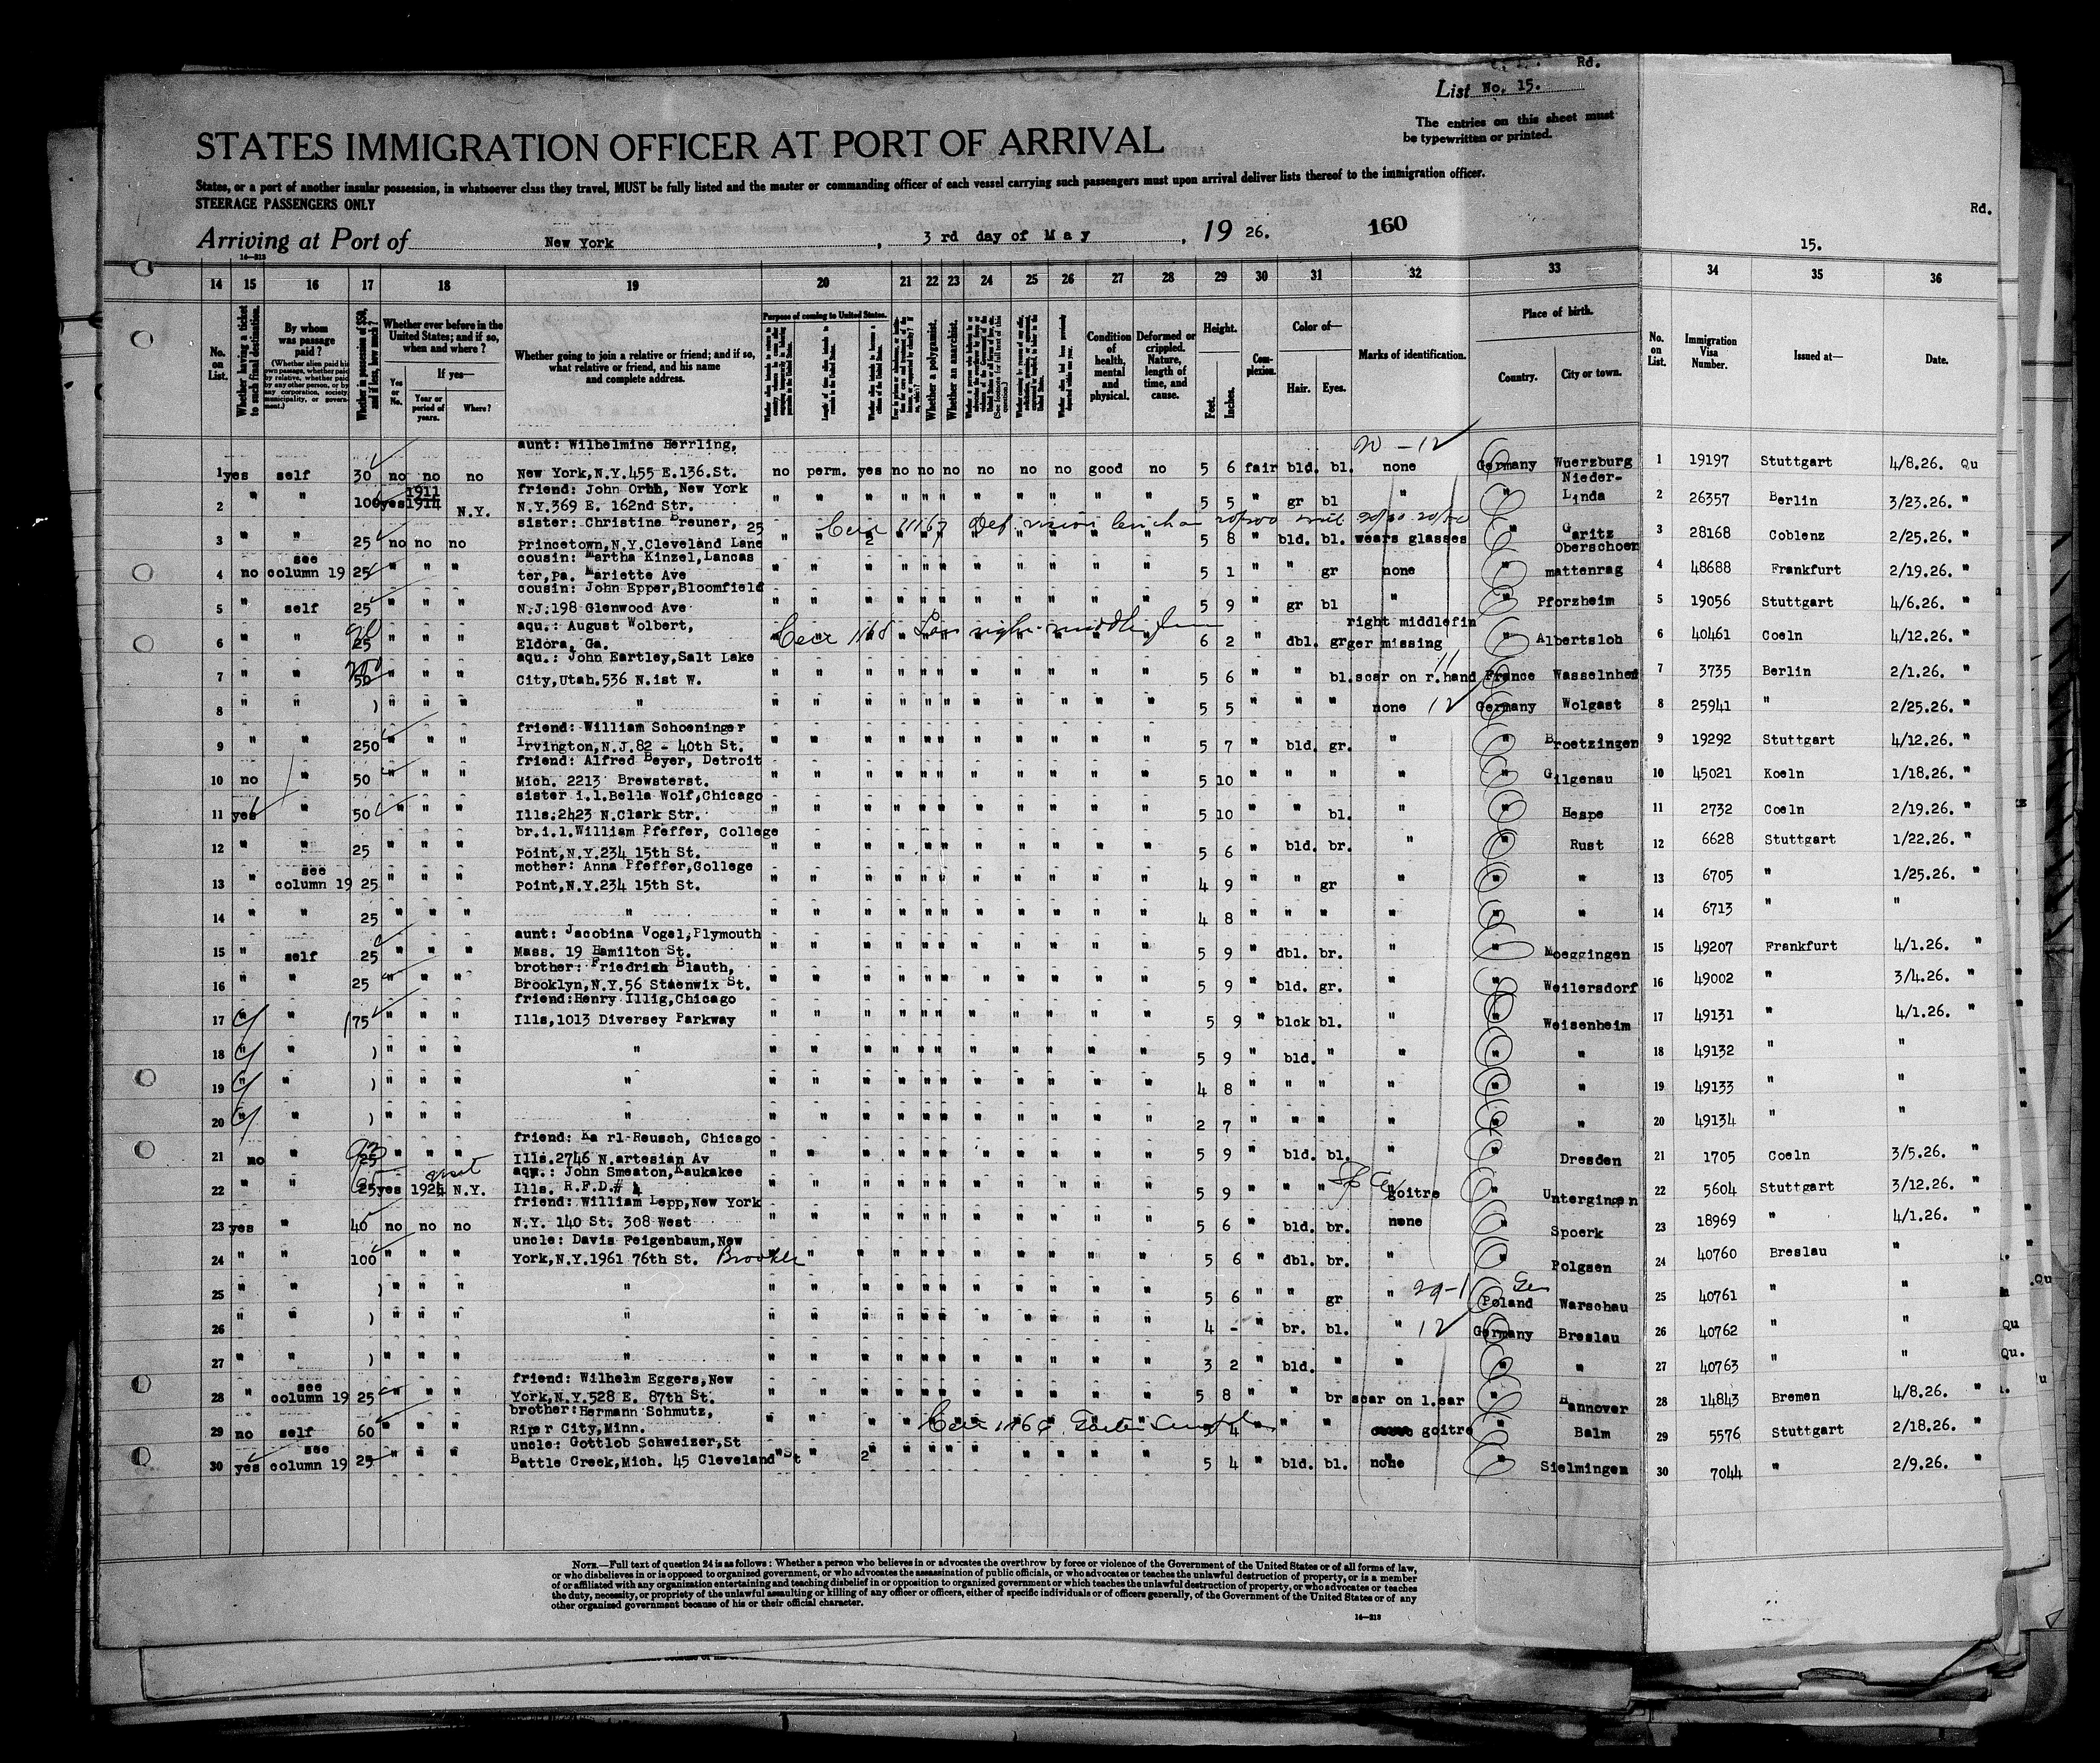 Rd.
List No. 15.
The entries on this sheet must
be typewritten or printed.
STATES IMMIGRATION OFFICER AT PORT OF ARRIVAL
States, or a port of another insular possession, in whatsoever class they travel, MUST be fully listed and the master or commanding officer of each vessel carrying such passengers must upon arrival deliver lists thereof to the immigration officer.
STEERAGE PASSENGERS ONLY
Rd.
Arriving at Port of New York, 3 rd day of May, 19 26. 160
15.
14—313
14 15 16 17 18 19 20 21 22 23 24 25 26 27 28 29 30 31 32 33 34 35 36
No. on List.
Whether having a ticket to such final destination.
By whom was passage paid?
(Whether alien paid his own passage, whether paid by relative, whether paid by any other person, or by any corporation, society, municipality, or government.)
Whether in possession of $50, and if less, how much?
Whether ever before in the United States; and if so, when and where?
Yes or No.
If yes—
Year or period of years.
Where?
Whether going to join a relative or friend; and if so, what relative or friend, and his name and complete address.
Purpose of coming to United States.
Whether a polygamist.
Whether an anarchist.
Condition of health, mental and physical.
Deformed or crippled. Nature, length of time, and cause.
Height.
Feet. Inches.
Complexion.
Color of—
Hair. Eyes.
Marks of identification.
Place of birth.
Country. City or town.
No. on List.
Immigration Visa Number.
Issued at—
Date.
20 - 12
aunt: Wilhelmine Herrling,
1 yes self 30 no no no New York, N.Y. 455 E. 136. St. no perm. yes no no no no no no good no 5 6 fair bld. bl. none Germany Wuerzburg 1 19197 Stuttgart 4/8.26. Qu
1911 friend: John Orth, New York Nieder-
2 " " 100 yes 1914 N.Y. N.Y. 369 E. 162nd Str. " " " " " " " " " " " 5 5 " gr bl " " Linda 2 26357 Berlin 3/23.26. "
sister: Christine Breuner, 25
3 " " 25 no no no Princetown, N.Y. Cleveland Lane " " 2 " " " " " " " " 5 8 " bld. bl. wears glasses " Garitz 3 28168 Coblenz 2/25.26. "
see cousin: Martha Kinzel, Lancas Oberschoen
4 no column 19 25 " " " ter, Pa. Mariette Ave " " " " " " " " " " " 5 1 " " gr none " mattenrag 4 48688 Frankfurt 2/19.26. "
cousin: John Epper, Bloomfield
5 " self 25 " " " N.J. 198 Glenwood Ave " " " " " " " " " " " 5 9 " gr bl " " Pforzheim 5 19056 Stuttgart 4/6.26. "
aqu.: August Wolbert, right middlefin
6 " " 25 " " " Eldora, Ga. 6 2 " dbl. gr ger missing " Albertsloh 6 40461 Coeln 4/12.26. "
aqu.: John Eartley, Salt Lake
7 " " 50 " " " City, Utah. 536 N. 1st W. " " " " " " " " " " " 5 6 " " bl. scar on r. hand France Wasselnhem 7 3735 Berlin 2/1.26. "
8 " " ) " " " " " " " " " " " " " " " " 5 5 " " " none 12 Germany Wolgast 8 25941 " 2/25.26. "
friend: William Schoeninger
9 " " 250 " " " Irvington, N.J. 82 - 40th St. " " " " " " " " " " " 5 7 " bld. gr. " " Broetzingen 9 19292 Stuttgart 4/12.26. "
friend: Alfred Beyer, Detroit
10 no " 50 " " " Mich. 2213 Brewsterst. " " " " " " " " " " " 5 10 " " " " " Gilgenau 10 45021 Koeln 1/18.26. "
sister i.l. Bella Wolf, Chicago
11 yes " 50 " " " Ills. 2423 N. Clark Str. " " " " " " " " " " " 5 10 " " bl. " " Hespe 11 2732 Coeln 2/19.26. "
br.i.l. William Pfeffer, College
12 " " 25 " " " Point, N.Y. 234 15th St. " " " " " " " " " " " 5 6 " bld. br. " " Rust 12 6628 Stuttgart 1/22.26. "
see mother: Anna Pfeffer, College
13 " column 19 25 " " " Point, N.Y. 234 15th St. " " " " " " " " " " " 4 9 " " gr " " " 13 6705 " 1/25.26. "
14 " " 25 " " " " " " " " " " " " " " " " 4 8 " " " " " " 14 6713 " "
aunt: Jacobina Vogel, Plymouth
15 " self 25 " " " Mass. 19 Hamilton St. " " " " " " " " " " " 5 9 " dbl. br. " " Moeggingen 15 49207 Frankfurt 4/1.26. "
brother: Friedrich Blauth,
16 " " 25 " " " Brooklyn, N.Y. 56 Staenwix St. " " " " " " " " " " " 5 9 " bld. gr. " " Weilersdorf 16 49002 " 3/4.26. "
friend: Henry Illig, Chicago
17 " " 175 " " " Ills, 1013 Diversey Parkway " " " " " " " " " " " 5 9 " blck bl. " " Weisenheim 17 49131 " 4/1.26. "
18 " " ) " " " " " " " " " " " " " " " " 5 9 " bld. " " " " 18 49132 " "
19 " " ) " " " " " " " " " " " " " " " " 4 8 " " " " " " 19 49133 " "
20 " " ) " " " " " " " " " " " " " " " " 2 7 " " " " " " 20 49134 " "
friend: Karl Reusch, Chicago
21 no " 25 " " " Ills. 2746 N. artesian Av " " " " " " " " " " " 5 9 " bld. bl. " Dresden 21 1705 Coeln 3/5.26. "
aqu.: John Smeaton, Kaukakee
22 " " 25 yes 1924 N.Y. Ills. R.F.D. # 4 " " " " " " " " " " " 5 9 " " " goitre " Untergingen 22 5604 Stuttgart 3/12.26. "
friend: William Lepp, New York
23 yes " 40 no no no N.Y. 140 St. 308 West " " " " " " " " " " " 5 6 " bld. br. none " Spoerk 23 18969 " 4/1.26. "
uncle: Davis Feigenbaum, New
24 " " 100 " " " York, N.Y. 1961 76th St. " " " " " " " " " " 5 6 " dbl. br. " " Polgsen 24 40760 Breslau "
25 " " ) " " " " " " " " " " " " " " " " 5 6 " " gr " Poland Warschau 25 40761 " "
26 " " ) " " " " " " " " " " " " " " " " 4 - " br. bl. " 12 Germany Breslau 26 40762 " "
27 " " ) " " " " " " " " " " " " " " " " 3 2 " bld. " " " " 27 40763 " "
see friend: Wilhelm Eggers, New
28 " column 19 25 " " " York, N.Y. 528 E. 87th St. " " " " " " " " " " " 5 8 " " br scar on l. ear " Hannover 28 14843 Bremen 4/8.26. "
brother: Hermann Schmutz,
29 no self 60 " " " River City, Minn. 5 4 " " " goitre " Balm 29 5576 Stuttgart 2/18.26. "
see uncle: Gottlob Schweizer, St
30 yes column 19 25 " " " Battle Creek, Mich. 45 Cleveland St " 2 " " " " " " " " 5 4 " bld. bl. none " Sielmingen 30 7044 " 2/9.26. "
NOTE.—Full text of question 24 is as follows: Whether a person who believes in or advocates the overthrow by force or violence of the Government of the United States or of all forms of law,
or who disbelieves in or is opposed to organized government, or who advocates the assassination of public officials, or who advocates or teaches the unlawful destruction of property, or is a member
of or affiliated with any organization entertaining and teaching disbelief in or opposition to organized government or which teaches the unlawful destruction of property, or who advocates or teaches
the duty, necessity, or propriety of the unlawful assaulting or killing of any officer or officers, either of specific individuals or of officers generally, of the Government of the United States or of any
other organized government because of his or their official character.
14—313